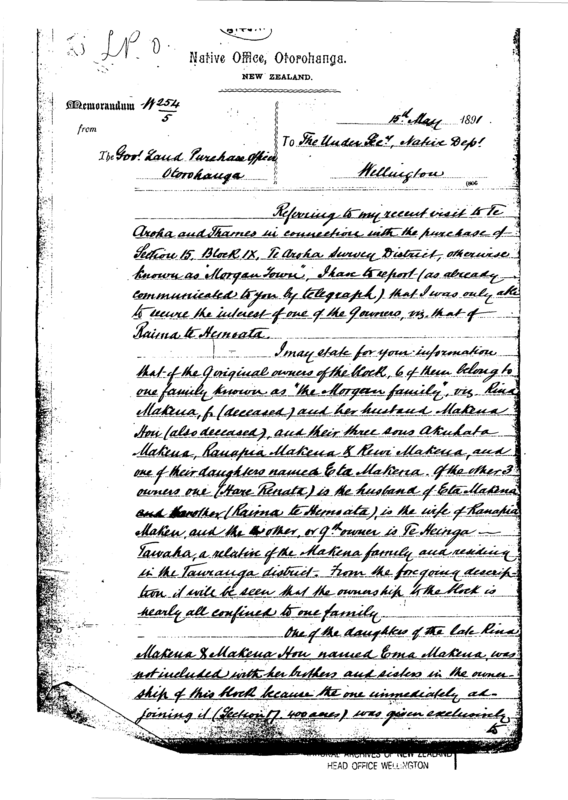 L.P.O
Native Office, Otorohanga.
NEW ZEALAND.
Memorandum N 254/5
15th May 1891
from
To The Under Secy, Native Dept
The Govt Land Purchase Officer
Otorohanga
Wellington
Referring to my recent visit to Te
Aroha and Thames in connection with the purchase of
Section 15, Block IX, Te Aroha Survey District, otherwise
known as "Morgan Town", I have to report (as already
communicated to you by telegraph) that I was only able
to secure the interest of one of the 9 owners, viz. that of
Raima te Hemoata.
I may state for your information
that of the 9 original owners of the block, 6 of them belong to
one family known as "the Morgan family", viz. Rina
Makena, f, (deceased) and her husband Makena
Hou (also deceased), and their three sons Akuhata
Makena, Ranapia Makena & Rewi Makena, and
one of their daughters named Eta Makena. Of the other 3
owners one (Hare Renata) is the husband of Eta Makena
and another (Raima te Hemoata), is the wife of Ranapia
Maken, and the other, or 9th owner is Te Heinga
Tawaha, a relative of the Makena family and residing
in the Tauranga district. From the foregoing descrip-
tion it will be seen that the ownership of the block is
nearly all confined to one family.
One of the daughters of the late Rina
Makena & Makena Hou, named Ema Makena, was
not included with her brothers and sisters in the owner-
ship of this block because the one immediately ad-
joining it (Section 17, 400 acres) was given exclusively
to
NATIONAL ARCHIVES OF NEW ZEALAND
HEAD OFFICE WELLINGTON